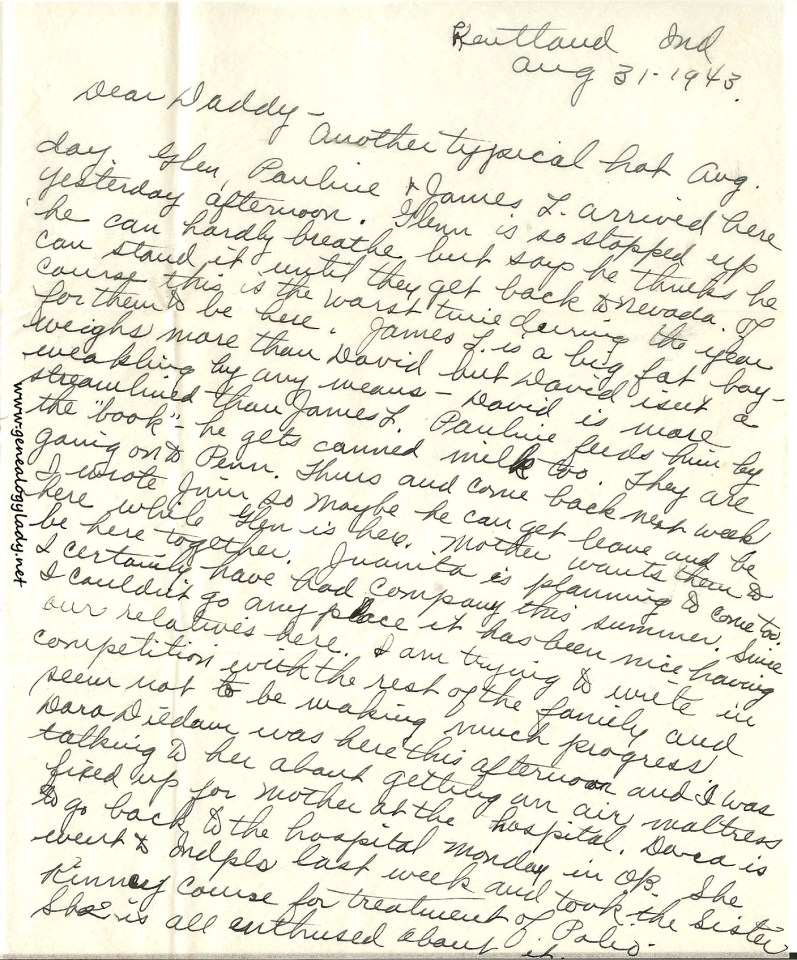 Kentland Ind
Aug 31-1943.
Dear Daddy -
Another typical hot Aug.
day. Glen, Pauline & James L. arrived here
yesterday afternoon. Glenn is so stopped up
he can hardly breathe but says he thinks he
can stand it until they get back to Nevada. Of
course this is the worst time during the year
for them to be here. James L. is a big fat boy -
weighs more than David but David isent a
weakling by any means - David is more
streamlined than James L. Pauline feeds him by
the "book" - he gets canned milk too. They are
going on to Penn. Thurs and come back next week
I wrote Jim so maybe he can get leave and be
here while Glen is here. Mother wants them to
be here together. Juanita is planning to come too.
I certainly have had company this summer. Since
I couldn't go any place it has been nice having
our relatives here. I am trying to write in
competition with the rest of the family and
seem not to be making much progress
Dora Diedam was here this afternoon and I was
talking to her about getting an air mattress
fixed up for mother at the hospital. Dora is
to go back to the hospital Monday in OB. She
went to Indpls last week and took the Sister
Kinney course for treatment of Polio.
She is all enthused about it.
www.genealogylady.net